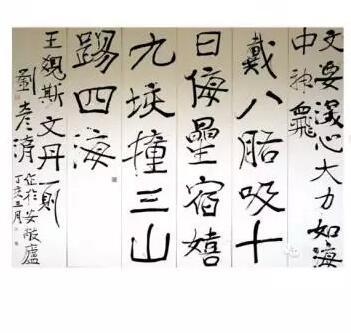 文要深心大力如海
中神
戴八肱吸十
日侮曐宿嬉
九垓撞三山
踢四海
王覺斯文丹一則
劉彥
丁亥三月
作於安廬